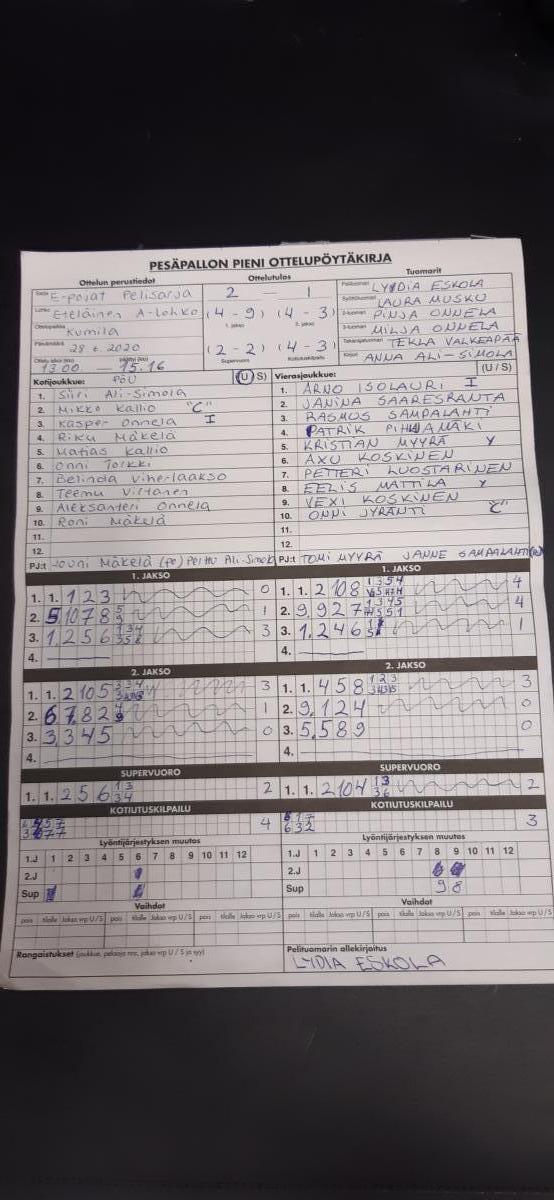 PESÄPALLON PIENI OTTELUPÖYTÄKIRJA
Ottelun perustiedot Ottelutulos Tuomarit
Sarja E-pojat Pelisarja 2 — 1 Pelituomari LYYDIA ESKOLA
Lohko Eteläinen A-Lohko (4 - 9) (4 - 3) Syöttötuomari LAURA MUSKU
1. jakso 2. jakso 2-tuomari PINJA ONNELA
Ottelupaikka Kumila 3-tuomari MILJA ONNELA
Päivämäärä 2020 (2 - 2) (4 - 3) Takarajatuomari TEKLA VALKEAPÄÄ
Supervuoro Kotiutuskilpailu
Ottelu alkoi (klo) 13.00 — päättyi (klo) 15.16 Kirjuri ANNA ALI-SIMOLA
Kotijoukkue: PöU (U/S) Vierasjoukkue: (U/S)
1. Siiri Ali-Simola 1. ARNO ISOLAURI I
2. Mikko Kallio "C" 2. JANINA SAARESRANTA
3. Kasper Onnela I 3. RASMUS SAMPALAHTI
4. Riku Mäkelä 4. PATRIK PIHLAJAMÄKI
5. Matias Kallio 5. KRISTIAN MYYRÄ Y
6. Onni Torkki 6. AXU KOSKINEN
7. Belinda Viherlaakso 7. PETTERI LUOSTARINEN
8. Teemu Virtanen 8. EELIS MATTILA Y
9. Aleksanteri Onnela 9. VEXI KOSKINEN
10. Roni Mäkelä 10. ONNI JYRÄNTI "C"
11. 11.
12. 12.
PJ:t Jouni Mäkelä (po) Perttu Ali-Simola PJ:t TOMI MYYRÄ JANNE SAMPALAHTI
1. JAKSO 1. JAKSO
1. 1. 2 3 0 1. 1. 2 10 8 4
2. 5 10 7 8 1 2. 9. 9 2 7 4
3. 1. 2 5 6 3 3. 1. 2 4 6 1
4. 4.
2. JAKSO 2. JAKSO
1. 1. 2 10 5 3 1. 1. 4 5 8 3
2. 6 7. 8 2 1 2. 9. 1 2 4 0
3. 3. 3 4 5 0 3. 5. 5 8 9 0
4. 4.
SUPERVUORO SUPERVUORO
1. 1. 2 5 6 2 1. 1. 2 10 4 2
KOTIUTUSKILPAILU KOTIUTUSKILPAILU
4 3
6 3 2
Lyöntijärjestyksen muutos Lyöntijärjestyksen muutos
1.J 1 2 3 4 5 6 7 8 9 10 11 12 1.J 1 2 3 4 5 6 7 8 9 10 11 12
2.J 2.J
Sup Sup 9 8
Vaihdot Vaihdot
pois tilalle Jakso vrp U/S pois tilalle Jakso vrp U/S pois tilalle Jakso vrp U/S pois tilalle Jakso vrp U/S pois tilalle Jakso vrp U/S pois tilalle Jakso vrp U/S
Rangaistukset (joukkue, pelaaja nro, jakso vrp U / S ja syy) Pelituomarin allekirjoitus
LYDIA ESKOLA